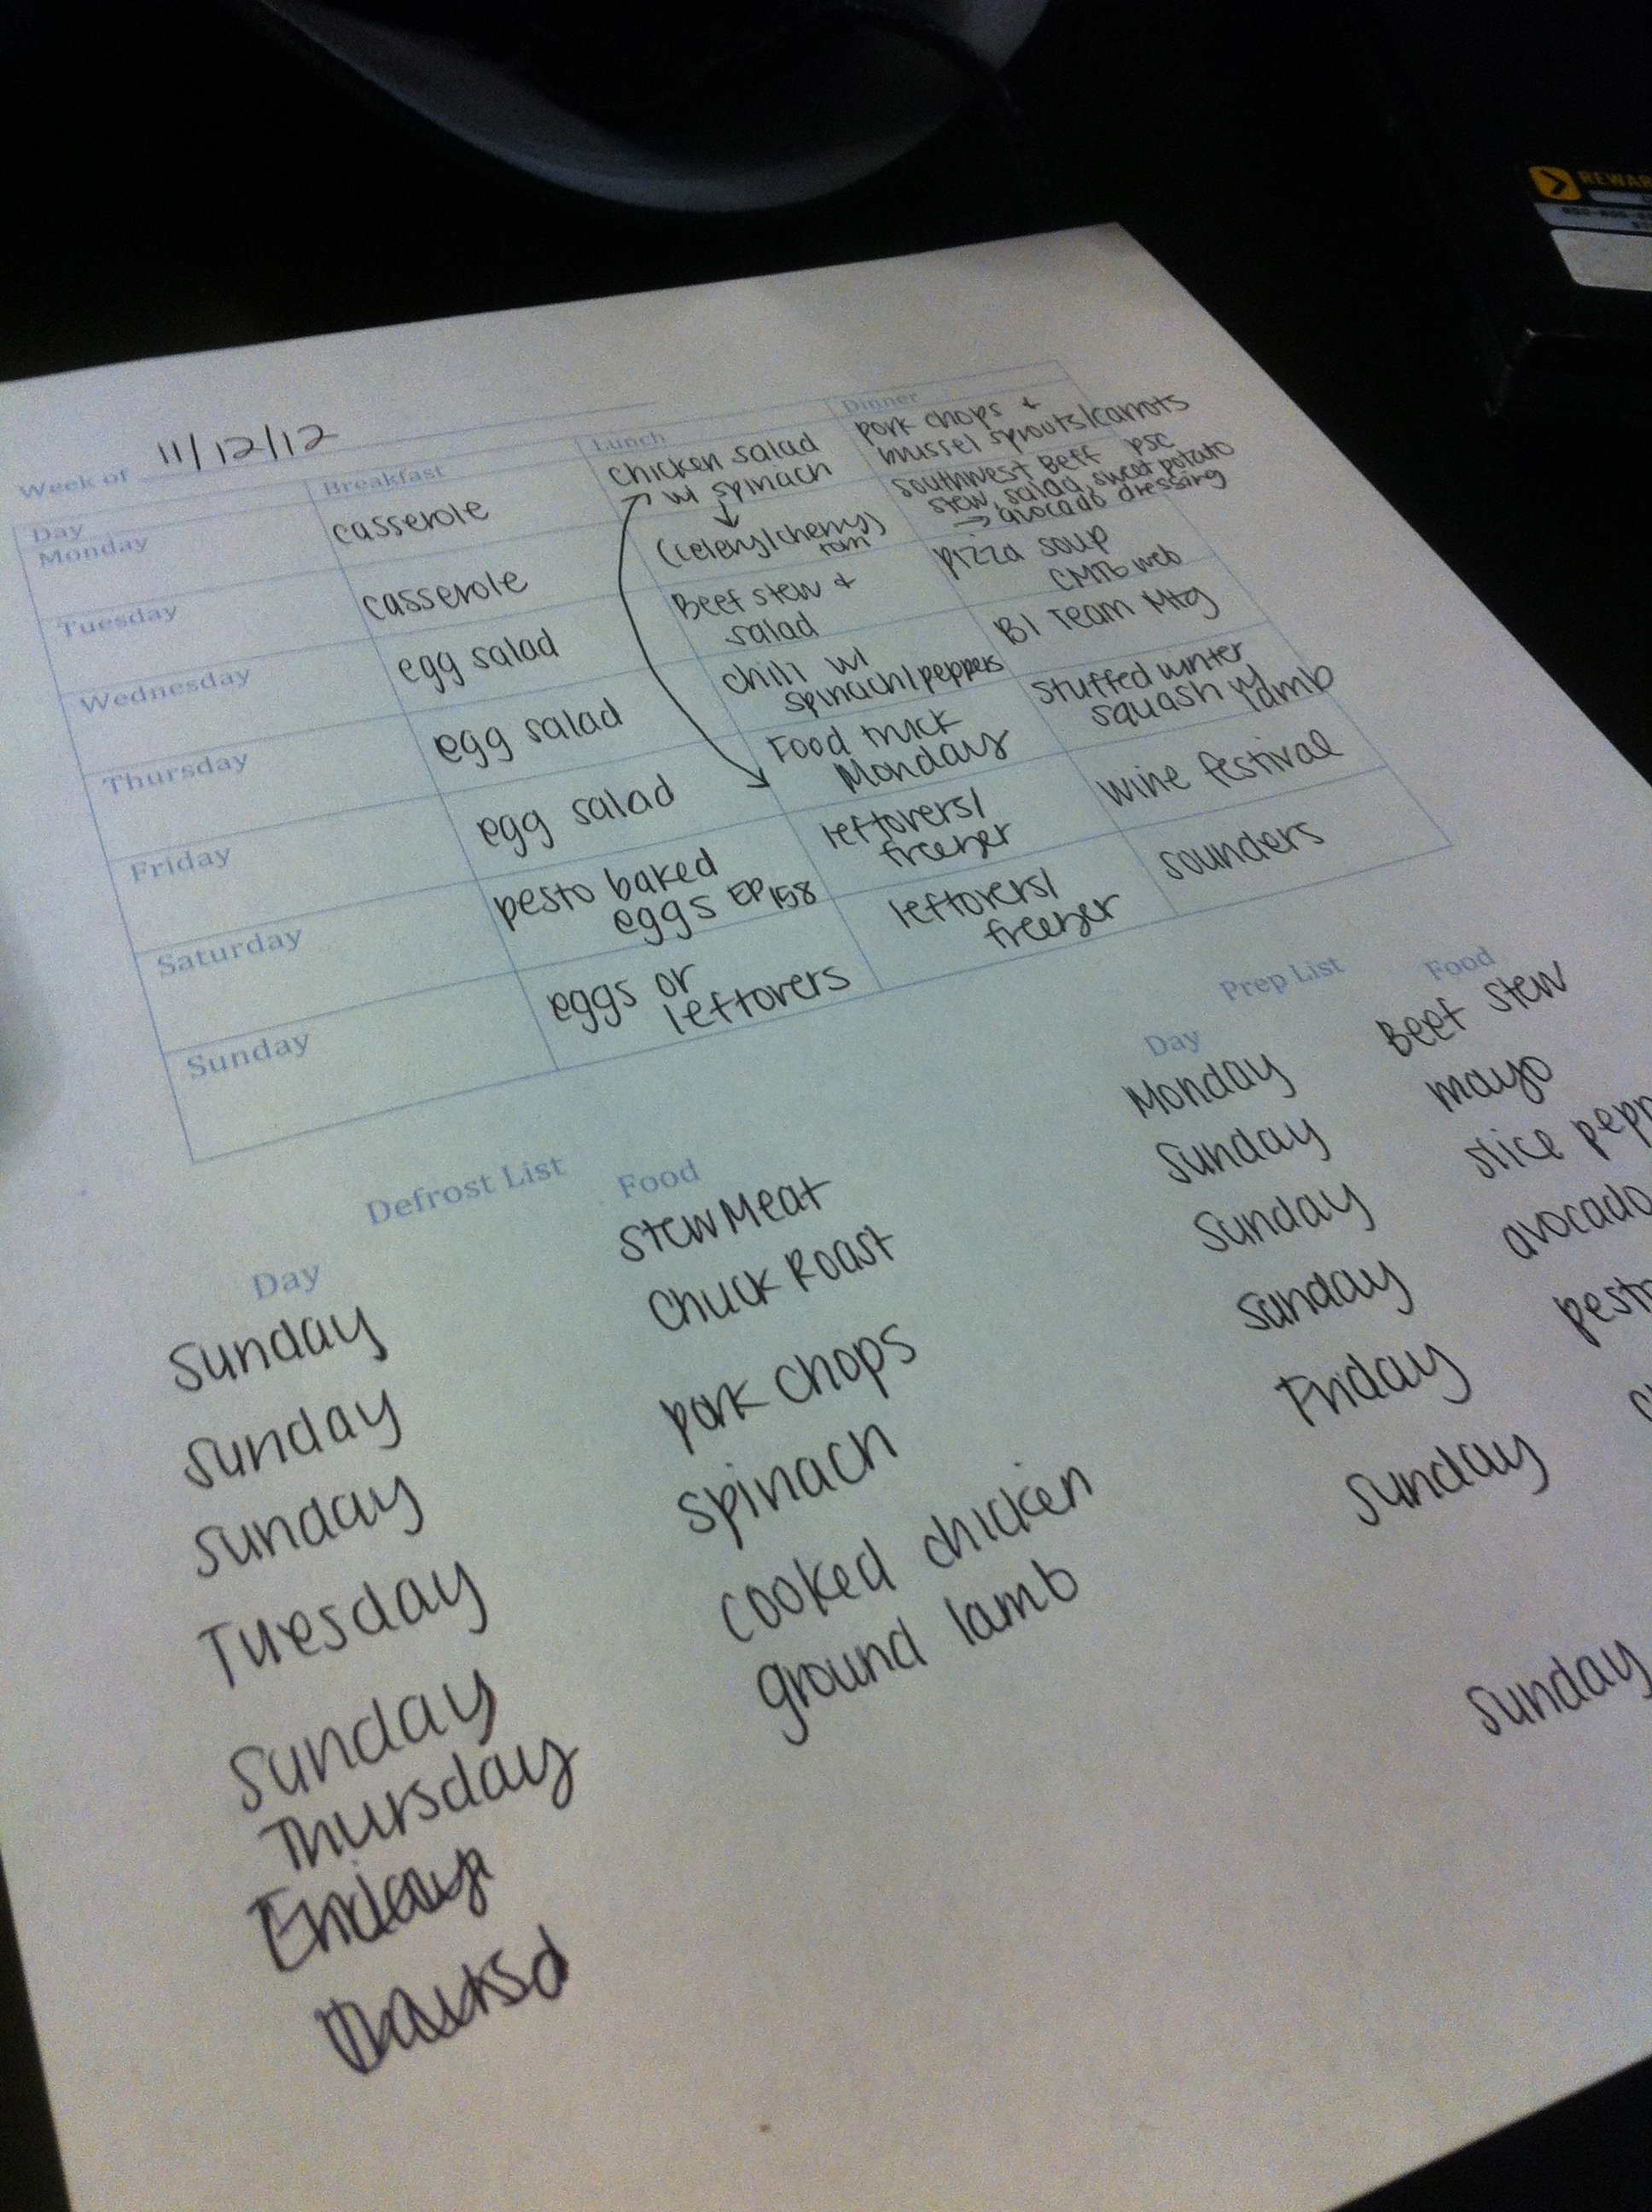 Week of 11/12/12
Day Breakfast Lunch Dinner
Monday
casserole
chicken salad
w/ spinach
(celery/cherry
tom)
pork chops +
brussel sprouts/carrots
Tuesday
casserole
Beef stew +
salad
southwest Beff psc
stew, salad, sweet potato
→ avocado dressing
Wednesday
egg salad
chili w/
spinach/peppers
pizza soup
CMTb web
Thursday
egg salad
Food truck
Mondays
BI Team Mtg
Friday
egg salad
leftovers/
freezer
stuffed winter
squash w/ lamb
Saturday
pesto baked
eggs EP158
leftovers/
freezer
wine festival
Sunday
eggs or
leftovers
sounders
Defrost List
Day Food
Sunday stew Meat
Sunday Chuck Roast
Sunday pork chops
Tuesday spinach
Sunday cooked chicken
Thursday ground lamb
Friday
Prep List
Day Food
Monday Beef stew
Sunday mayo
Sunday slice
Sunday avocado
Friday
Sunday
Sunday